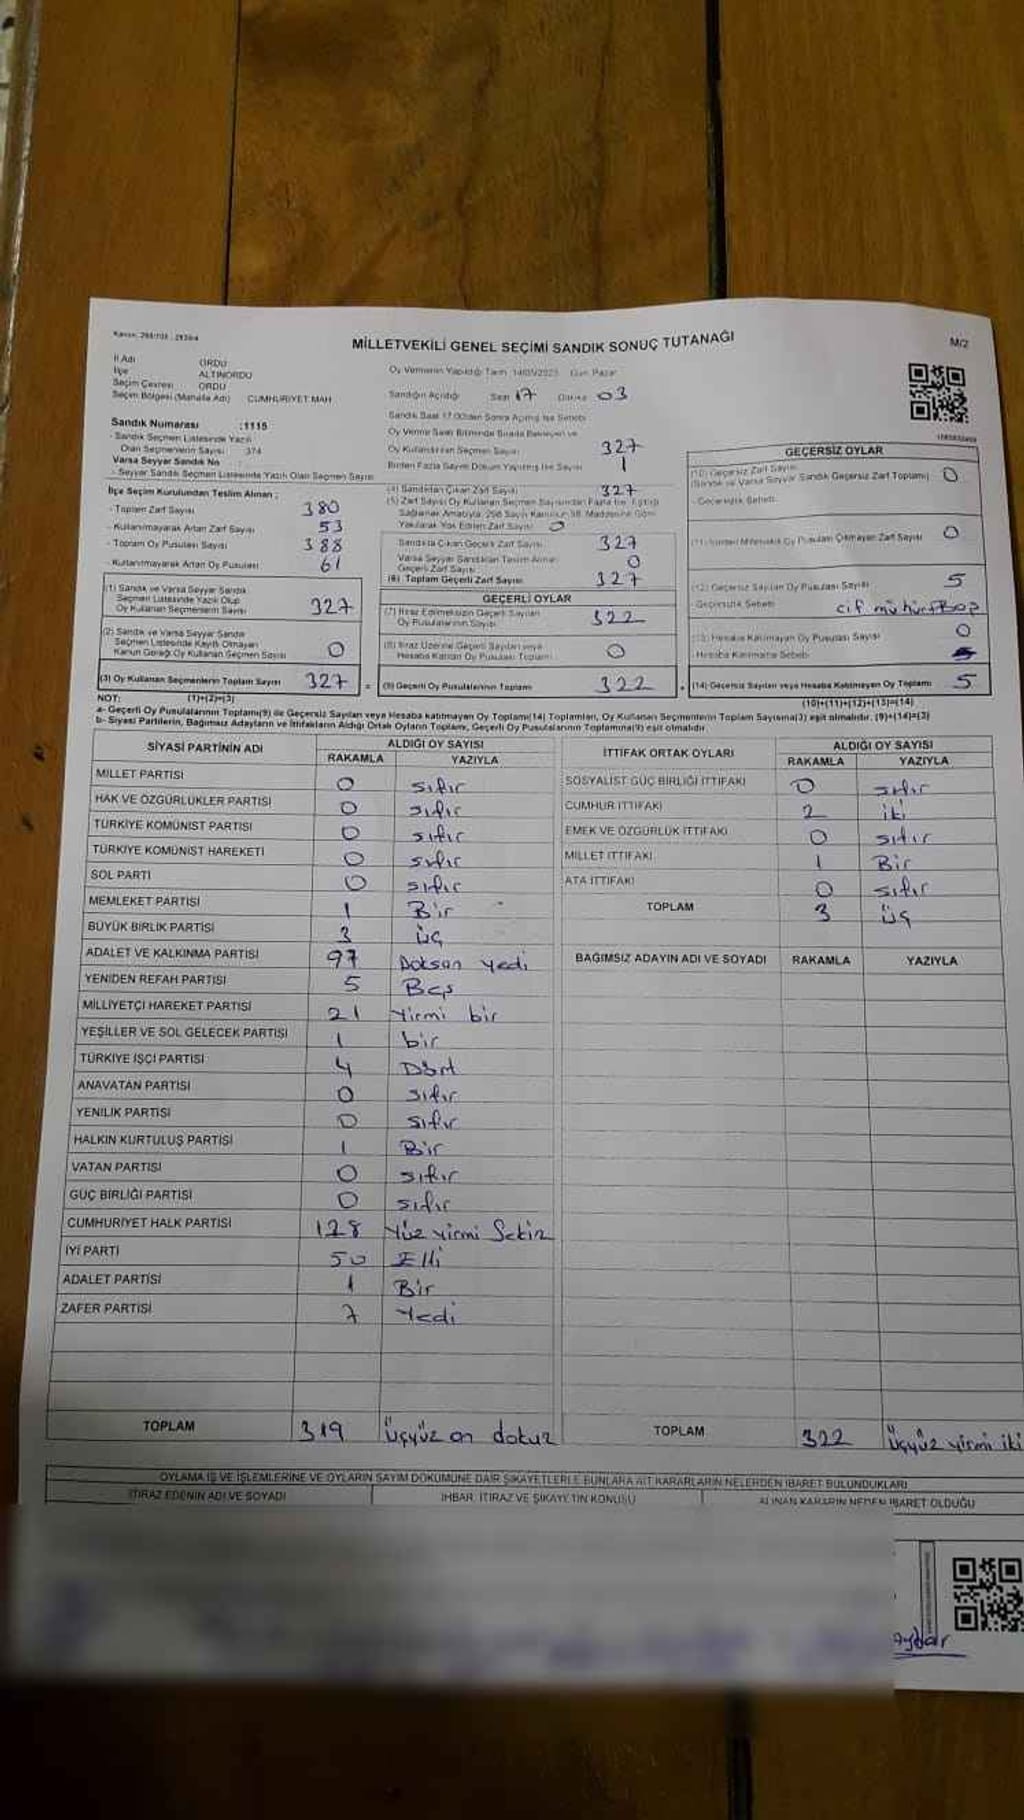 MİLLETVEKİLİ GENEL SEÇİMİ SANDIK SONUÇ TUTANAĞI
M/2
İl Adı ORDU
İlçe ALTINORDU
Seçim Çevresi ORDU
Seçim Bölgesi (Mahalle Adı) CUMHURİYET MAH
Oy Vermenin Yapıldığı Tarih 14/05/2023 Gün Pazar
Sandığın Açıldığı Saat 17 Dakika 03
Sandık Numarası :1115
- Sandık Seçmen Listesinde Yazılı
Olan Seçmenlerin Sayısı 374
Varsa Seyyar Sandık No
- Seyyar Sandık Seçmen Listesinde Yazılı Olan Seçmen Sayısı
Oy Kullandırılan Seçmen Sayısı 327
Birden Fazla Sayım Döküm Yapılmış İse Sayısı 1
İlçe Seçim Kurulundan Teslim Alınan ;
- Toplam Zarf Sayısı 380
- Kullanılmayarak Artan Zarf Sayısı 53
- Toplam Oy Pusulası Sayısı 388
- Kullanılmayarak Artan Oy Pusulası 61
(1) Sandık ve Varsa Seyyar Sandık
Seçmen Listesinde Yazılı Olup
Oy Kullanan Seçmenlerin Sayısı 327
(2) Sandık ve Varsa Seyyar Sandık
Seçmen Listesinde Kayıtlı Olmayan
Kanun Gereği Oy Kullanan Seçmen Sayısı 0
(3) Oy Kullanan Seçmenlerin Toplam Sayısı 327
(1)+(2)=(3)
(4) Sandıktan Çıkan Zarf Sayısı 327
Yakılarak Yok Edilen Zarf Sayısı 0
Sandıkta Çıkan Geçerli Zarf Sayısı 327
Varsa Seyyar Sandıktan Teslim Alınan
Geçerli Zarf Sayısı 0
(6) Toplam Geçerli Zarf Sayısı 327
GEÇERLİ OYLAR
(7) İtiraz Edilmeksizin Geçerli Sayılan
Oy Pusulalarının Sayısı 322
(8) İtiraz Üzerine Geçerli Sayılan veya
Hesaba Katılan Oy Pusulası Toplamı 0
(9) Geçerli Oy Pusulalarının Toplamı 322
GEÇERSİZ OYLAR
(10) Geçersiz Zarf Sayısı
(Sandık ve Varsa Seyyar Sandık Geçersiz Zarf Toplamı) 0
- Geçersizlik Sebebi
0
(12) Geçersiz Sayılan Oy Pusulası Sayısı 5
- Geçersizlik Sebebi
(13) Hesaba Katılmayan Oy Pusulası Sayısı 0
- Hesaba Katılmama Sebebi
(14) Geçersiz Sayılan veya Hesaba Katılmayan Oy Toplamı 5
(10)+(11)+(12)+(13)=(14)
NOT:
a- Geçerli Oy Pusulalarının Toplamı(9) ile Geçersiz Sayılan veya Hesaba katılmayan Oy Toplamı(14) Toplamları, Oy Kullanan Seçmenlerin Toplam Sayısına(3) eşit olmalıdır. (9)+(14)=(3)
b- Siyasi Partilerin, Bağımsız Adayların ve İttifakların Aldığı Ortak Oyların Toplamı, Geçerli Oy Pusulalarının Toplamına(9) eşit olmalıdır.
SİYASİ PARTİNİN ADI ALDIĞI OY SAYISI
RAKAMLA YAZIYLA
MİLLET PARTİSİ 0 sıfır
HAK VE ÖZGÜRLÜKLER PARTİSİ 0 sıfır
TÜRKİYE KOMÜNİST PARTİSİ 0 sıfır
TÜRKİYE KOMÜNİST HAREKETİ 0 sıfır
SOL PARTİ 0 sıfır
MEMLEKET PARTİSİ 1 Bir
BÜYÜK BİRLİK PARTİSİ 3 üç
ADALET VE KALKINMA PARTİSİ 97 Doksan yedi
YENİDEN REFAH PARTİSİ 5 Beş
MİLLİYETÇİ HAREKET PARTİSİ 21 Yirmi bir
YEŞİLLER VE SOL GELECEK PARTİSİ 1 bir
TÜRKİYE İŞÇİ PARTİSİ 4 Dört
ANAVATAN PARTİSİ 0 sıfır
YENİLİK PARTİSİ 0 sıfır
HALKIN KURTULUŞ PARTİSİ 1 Bir
VATAN PARTİSİ 0 sıfır
GÜÇ BİRLİĞİ PARTİSİ 0 sıfır
CUMHURİYET HALK PARTİSİ 128 Yüz yirmi Sekiz
İYİ PARTİ 50 Elli
ADALET PARTİSİ 1 Bir
ZAFER PARTİSİ 7 Yedi
TOPLAM 319 Üçyüz on dokuz
İTTİFAK ORTAK OYLARI ALDIĞI OY SAYISI
RAKAMLA YAZIYLA
SOSYALİST GÜÇ BİRLİĞİ İTTİFAKI 0 sıfır
CUMHUR İTTİFAKI 2 iki
EMEK VE ÖZGÜRLÜK İTTİFAKI 0 sıfır
MİLLET İTTİFAKI 1 Bir
ATA İTTİFAKI 0 sıfır
TOPLAM 3 üç
BAĞIMSIZ ADAYIN ADI VE SOYADI RAKAMLA YAZIYLA
TOPLAM 322 Üçyüz yirmi iki
OYLAMA İŞ VE İŞLEMLERİNE VE OYLARIN SAYIM DÖKÜMÜNE DAİR ŞİKAYETLERLE BUNLARA AİT KARARLARIN NELERDEN İBARET BULUNDUKLARI
İTİRAZ EDENİN ADI VE SOYADI İHBAR, İTİRAZ VE ŞİKAYETİN KONUSU ALINAN KARARIN NEDEN İBARET OLDUĞU